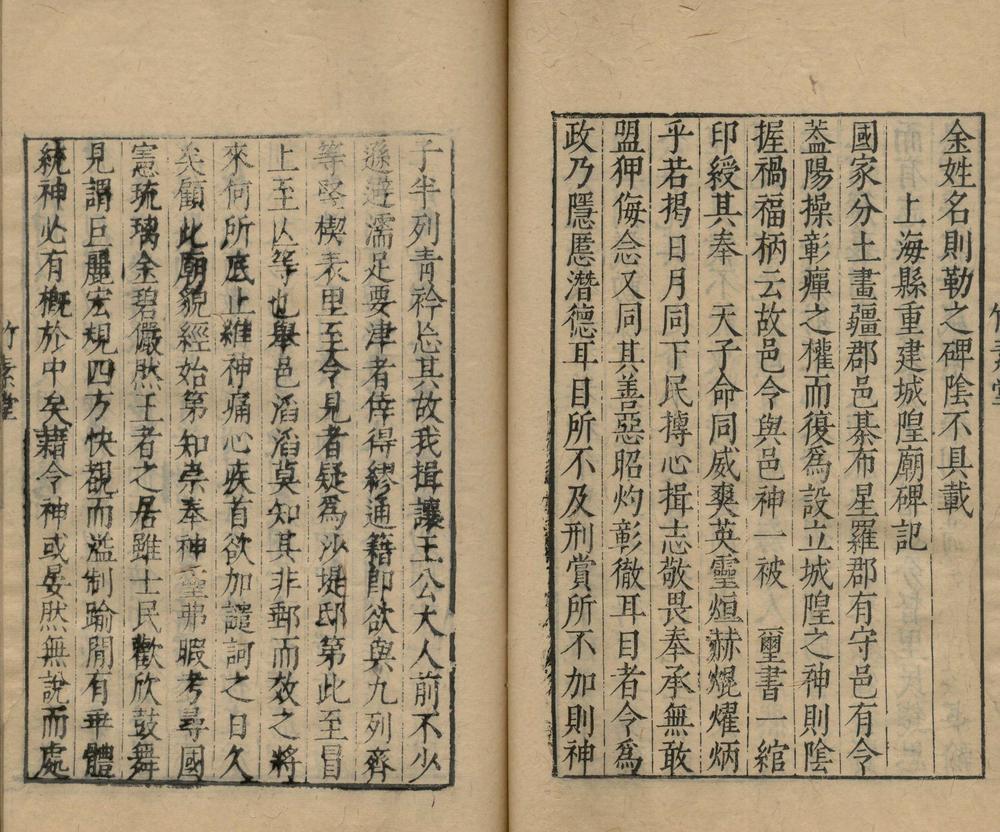 金姓名則勒之碑陰不具載
上海縣重建城隍廟碑記
國家分土畫疆郡邑棊布星羅郡有守邑有令
葢陽操彰癉之權而復爲設立城隍之神則陰
握禍福柄云故邑令與邑神一被　璽書一綰
印綬其奉　天子命同威爽英靈烜赫焜燿炳
乎若揭日月同下民摶心揖志敬畏奉承無敢
盟狎侮念又同其善惡昭灼彰徹耳目者令爲
政乃隱慝潛德耳目所不及刑賞所不加則神
子半列青衿怂其故我揖讓王公大人前不少
遜避濡足要津者倖得繆通籍卽欲與九列齊
等堅楔表里至令見者疑爲沙堤邸第此至冒
上至亾等也舉邑滔滔莫知其非郵而效之將
來何所底止維神痛心疾首欲加譴訶之日久
矣顧此廟貌經始第知崇奉神靈弗暇考尋國
憲琉璃金碧儼然王者之居雖士民歡欣鼓舞
見謂巨麗宏規四方快覩而濫制踰閑有乖體
統神必有槪於中矣藉令神或晏然無說而處
竹素堂